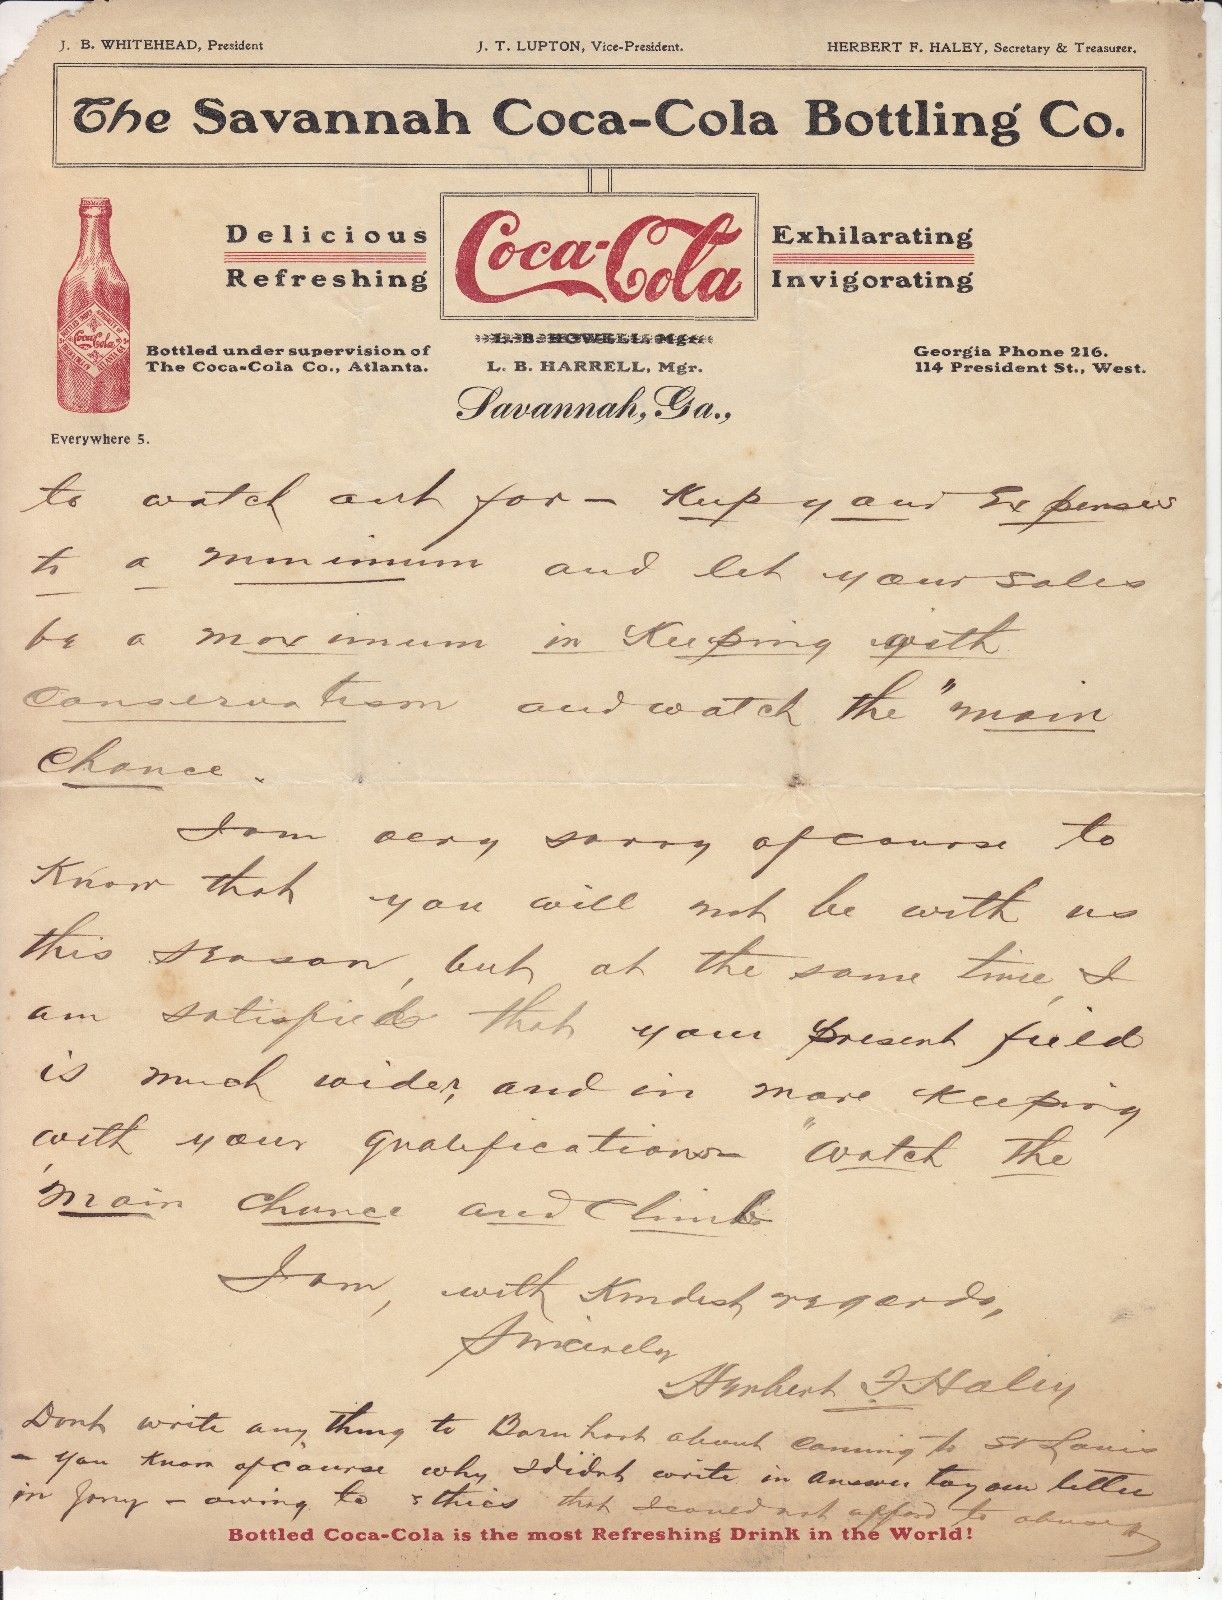 J. B. WHITEHEAD, President J. T. LUPTON, Vice-President. HERBERT F. HALEY, Secretary & Treasurer.
The Savannah Coca-Cola Bottling Co.
Delicious
Refreshing
Coca-Cola
Exhilarating
Invigorating
Coca-Cola
Bottled under supervision of
The Coca-Cola Co., Atlanta.
L. B. HOWELL, Mgr.
L. B. HARRELL, Mgr.
Savannah, Ga.,
Georgia Phone 216.
114 President St., West.
Everywhere 5.
to watch out for – Keep your Expenses
to a minimum and let your sales
be a maximum in Keeping with
conservatism and watch the "main
chance.
I am very sorry of course to
Know that you will not be with us
this season, but at the same time, I
am satisfied that your present field
is much wider, and in more Keeping
with your qualifications – "Watch the
main chance and Climb
I am, with Kindest regards,
Sincerely
Herbert F Haley
Dont write any thing to Barnhart about coming to St Louis
– you know of course why I didnt write in answer to your letter
in – owing to ethics that I could not afford to
Bottled Coca-Cola is the most Refreshing Drink in the World!